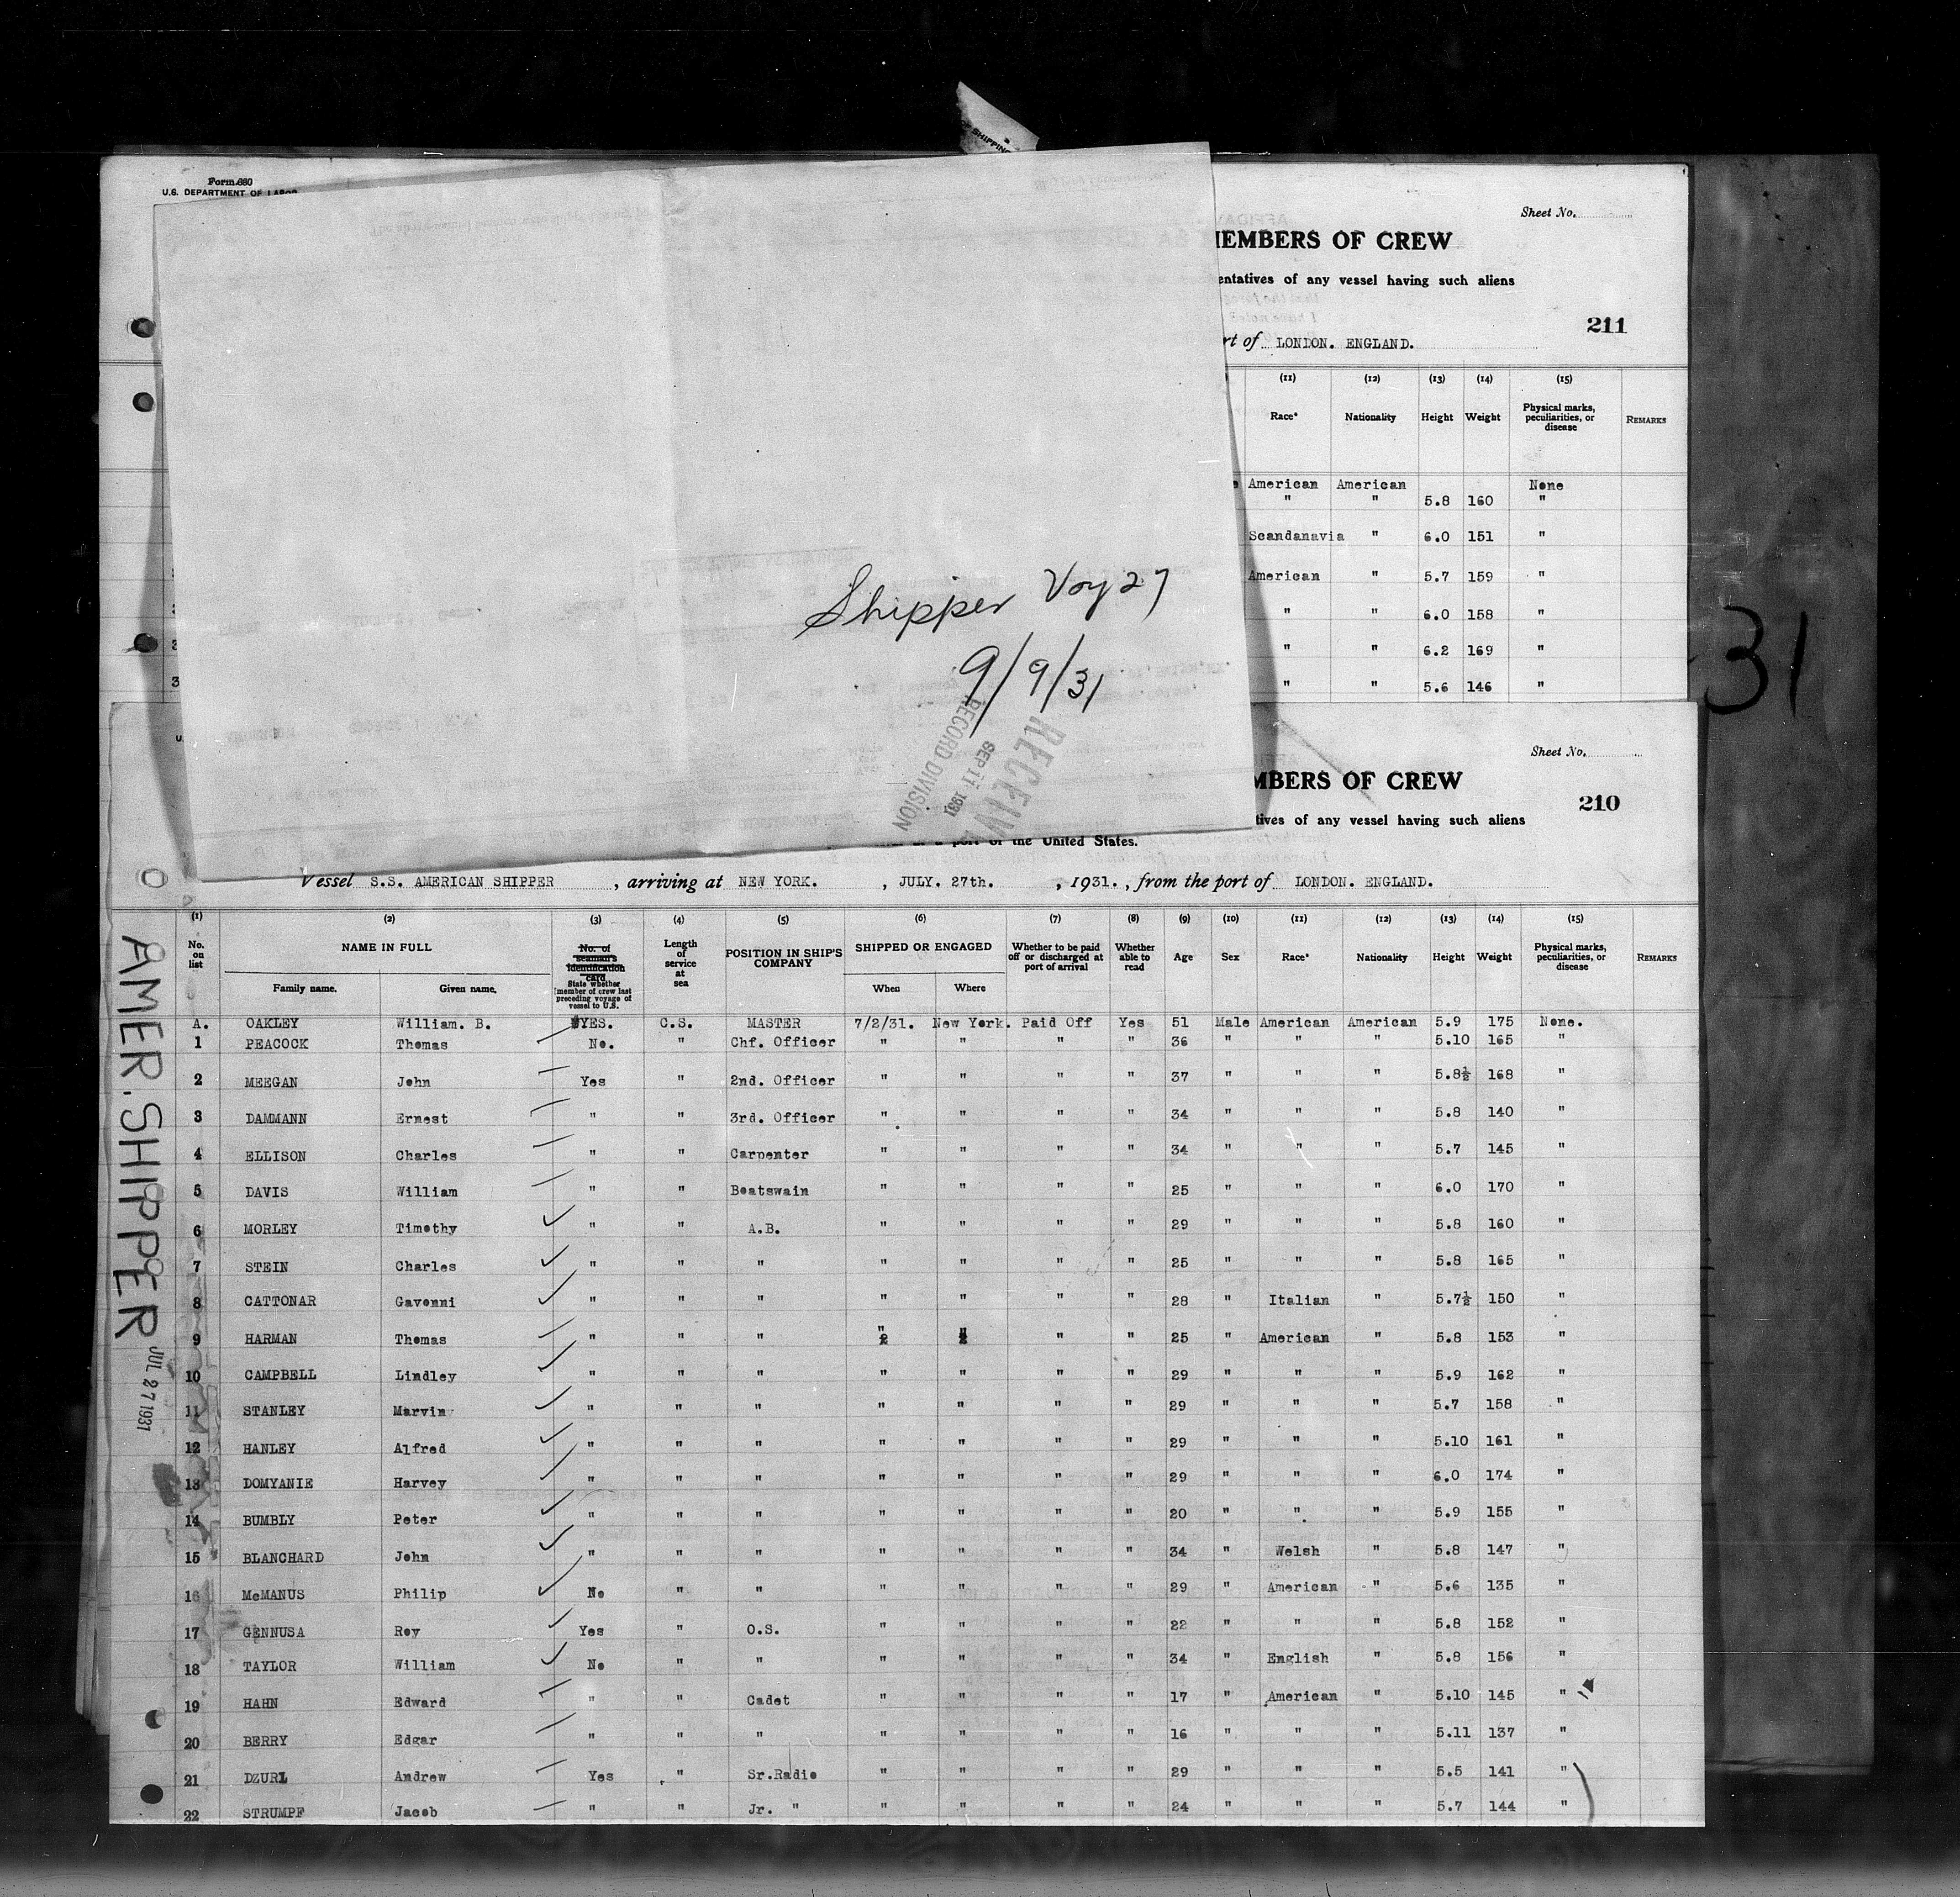 OF SHIPPING
Form 680
U.S. DEPARTMENT OF LABOR
Sheet No.
MEMBERS OF CREW
entatives of any vessel having such aliens
211
rt of LONDON. ENGLAND.
(11) (12) (13) (14) (15)
Race* Nationality Height Weight Physical marks, peculiarities, or disease REMARKS
American American None
" " 5.8 160 "
Scandanavia " 6.0 151 "
American " 5.7 159 "
" " 6.0 158 "
" " 6.2 169 "
" " 5.6 146 "
Shipper Voy 27
9/9/31
RECEIVE
SEP 11 1931
RECORD DIVISION
31
Sheet No.
MBERS OF CREW
210
tives of any vessel having such aliens
a port of the United States.
Vessel S.S. AMERICAN SHIPPER , arriving at NEW YORK. , JULY. 27th. , 1931. , from the port of LONDON. ENGLAND.
(1) (2) (3) (4) (5) (6) (7) (8) (9) (10) (11) (12) (13) (14) (15)
No. on list NAME IN FULL No. of seaman's identification card State whether member of crew last preceding voyage of vessel to U.S. Length of service at sea POSITION IN SHIP'S COMPANY SHIPPED OR ENGAGED Whether to be paid off or discharged at port of arrival Whether able to read Age Sex Race* Nationality Height Weight Physical marks, peculiarities, or disease REMARKS
Family name. Given name. When Where
A. OAKLEY William. B. YES. C.S. MASTER 7/2/31. New York. Paid Off Yes 51 Male American American 5.9 175 None.
1 PEACOCK Thomas No. " Chf. Officer " " " " 36 " " " 5.10 165 "
2 MEEGAN John Yes " 2nd. Officer " " " " 37 " " " 5.8½ 168 "
3 DAMMANN Ernest " " 3rd. Officer " " " " 34 " " " 5.8 140 "
4 ELLISON Charles " " Carpenter " " " " 34 " " " 5.7 145 "
5 DAVIS William " " Boatswain " " " " 25 " " " 6.0 170 "
6 MORLEY Timothy " " A.B. " " " " 29 " " " 5.8 160 "
7 STEIN Charles " " " " " " " 25 " " " 5.8 165 "
8 CATTONAR Gavonni " " " " " " " 28 " Italian " 5.7½ 150 "
9 HARMAN Thomas " " " " " " " 25 " American " 5.8 153 "
10 CAMPBELL Lindley " " " " " " " 29 " " " 5.9 162 "
11 STANLEY Marvin " " " " " " " 29 " " " 5.7 158 "
12 HANLEY Alfred " " " " " " " 29 " " " 5.10 161 "
13 DOMYANIE Harvey " " " " " " " 29 " " " 6.0 174 "
14 BUMBLY Peter " " " " " " " 20 " " " 5.9 155 "
15 BLANCHARD John " " " " " " " 34 " Welsh " 5.8 147 "
16 McMANUS Philip No " " " " " " 29 " American " 5.6 135 "
17 GENNUSA Roy Yes " O.S. " " " " 22 " " " 5.8 152 "
18 TAYLOR William No " " " " " " 34 " English " 5.8 156 "
19 HAHN Edward " " Cadet " " " " 17 " American " 5.10 145 "
20 BERRY Edgar " " " " " " " 16 " " " 5.11 137 "
21 DZURL Andrew Yes " Sr.Radio " " " " 29 " " " 5.5 141 "
22 STRUMPF Jacob " " Jr. " " " " " 24 " " " 5.7 144 "
AMER. SHIPPER
JUL 27 1931